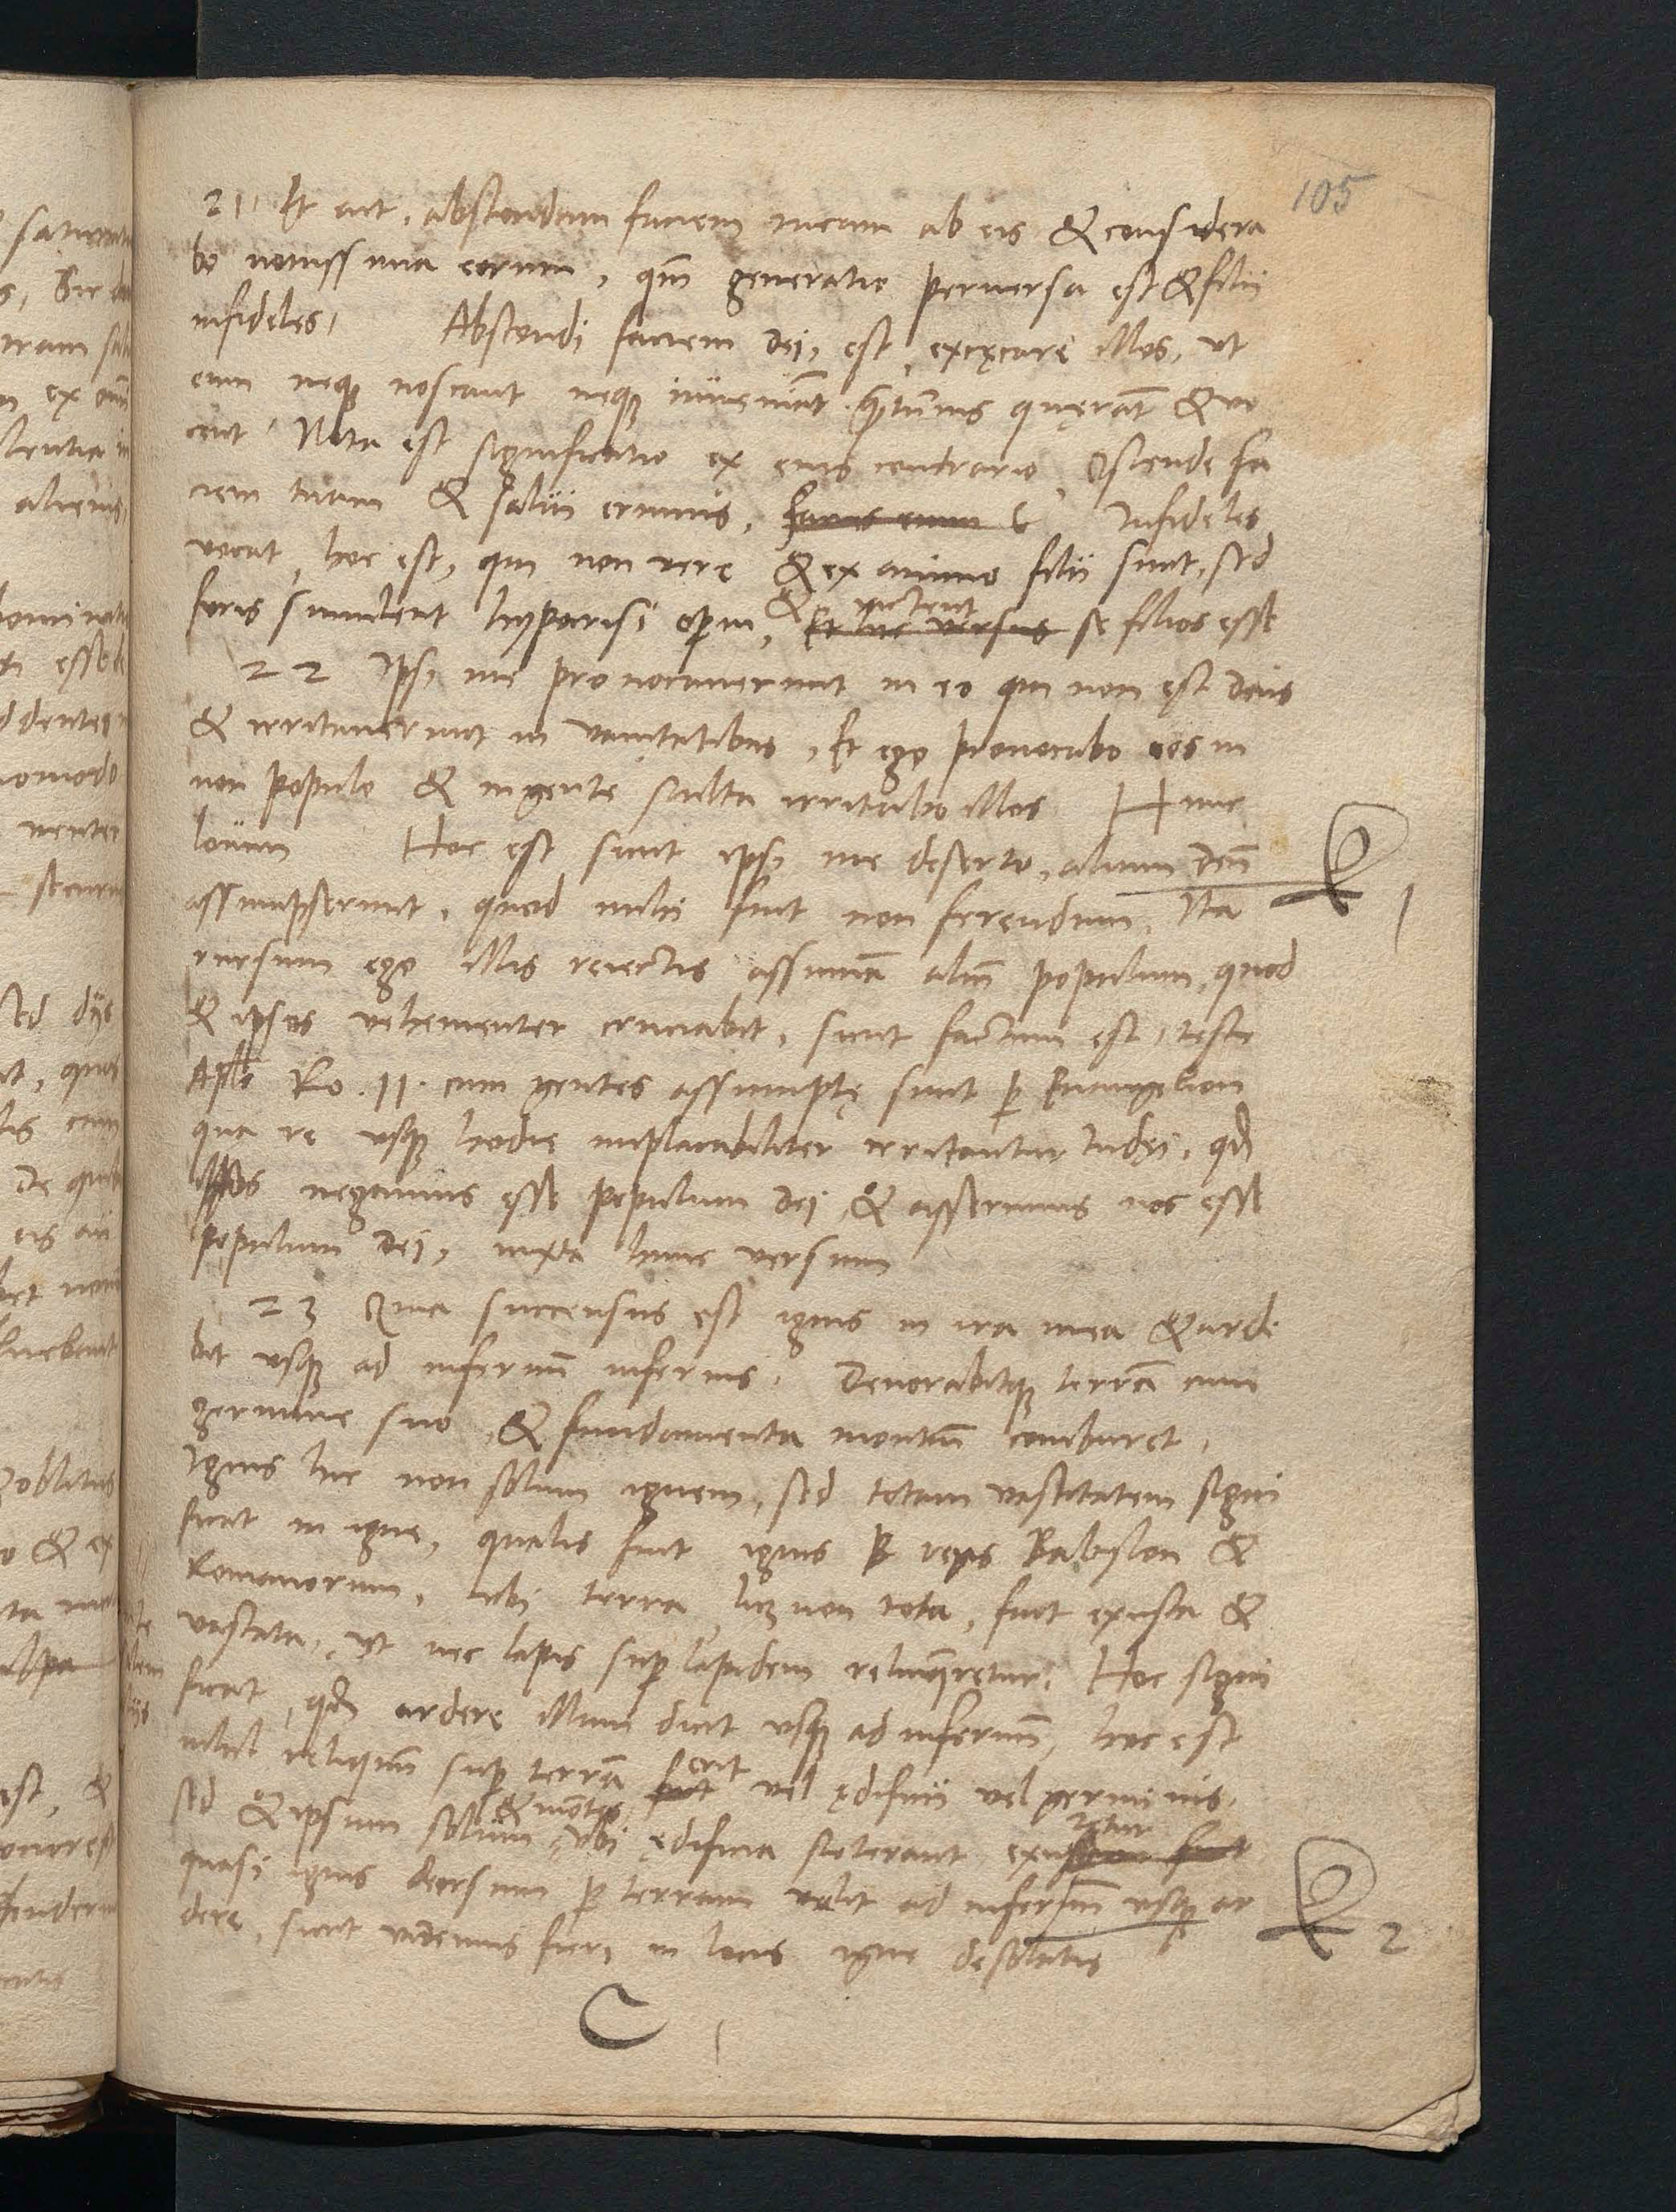 105
21 Et ait, abscondam faciem meam ab eis & considera
bo novissima eorum, qm̄ generatio perversa est & filii
infideles, Abscondi faciem dei, est, excęcare illos, ut
eum neque noscant neque inveniāt quantumvis quęrāt & vo
cent Nota est significatio ex eius contrario Ostende fa
ciem tuam & salvi erimus, Infideles
vocat, hoc est, qui non vere & ex animo filii sunt, sed
foris simulent hypocrisi operum, & iactent se filios esse
22 Ipsi me provocaverunt in eo qui non est deus
& irritaverunt in vanitatibus, Et ego provocabo eos in
non populo & in gente stulta irritabo illos Hunc
locum Hoc est sicut ipsi me deserto, alium deū
assumpserunt, quod mihi fuit non ferendum, Ita
rursum ego illis reiectis assumā aliū populum, quod
& ipsos vehementer cruciabit, sicut factum est, teste
Aplo Ro. 11. cum gentes assumptę sunt per Euangelion
qua re usque hodie implacabiliter irritantur Iudęi, qd
ipsos negamus esse populum dei, & asserimus nos esse
populum dei, iuxta hunc versum
23 Quia succensus est ignis in ira mea & arde
bit usque ad infernū inferius, Devorabitque terrā cum
germine suo, & fundamenta montiū comburet,
Ignis hic non solum ignem, sed totam vastitatem signi
ficat in igne, qualis fuit ignis per reges Babylon &
Romanorum, ubi terra, licet non tota, fuit exusta &
vastata, ut nec lapis super lapidem relinqueretur, Hoc signi
ficat, qd ardere illum dicit usque ad infernū, hoc est
nihil reliquū super terrā erit vel ędificii vel germinis,
sed & ipsum solum & mōtes, ubi ędificia steterant exuretur
quasi ignis deorsum per terram velit ad infernū usque ar
dere, sicut videmus fieri in locis igne desolatis
1
2